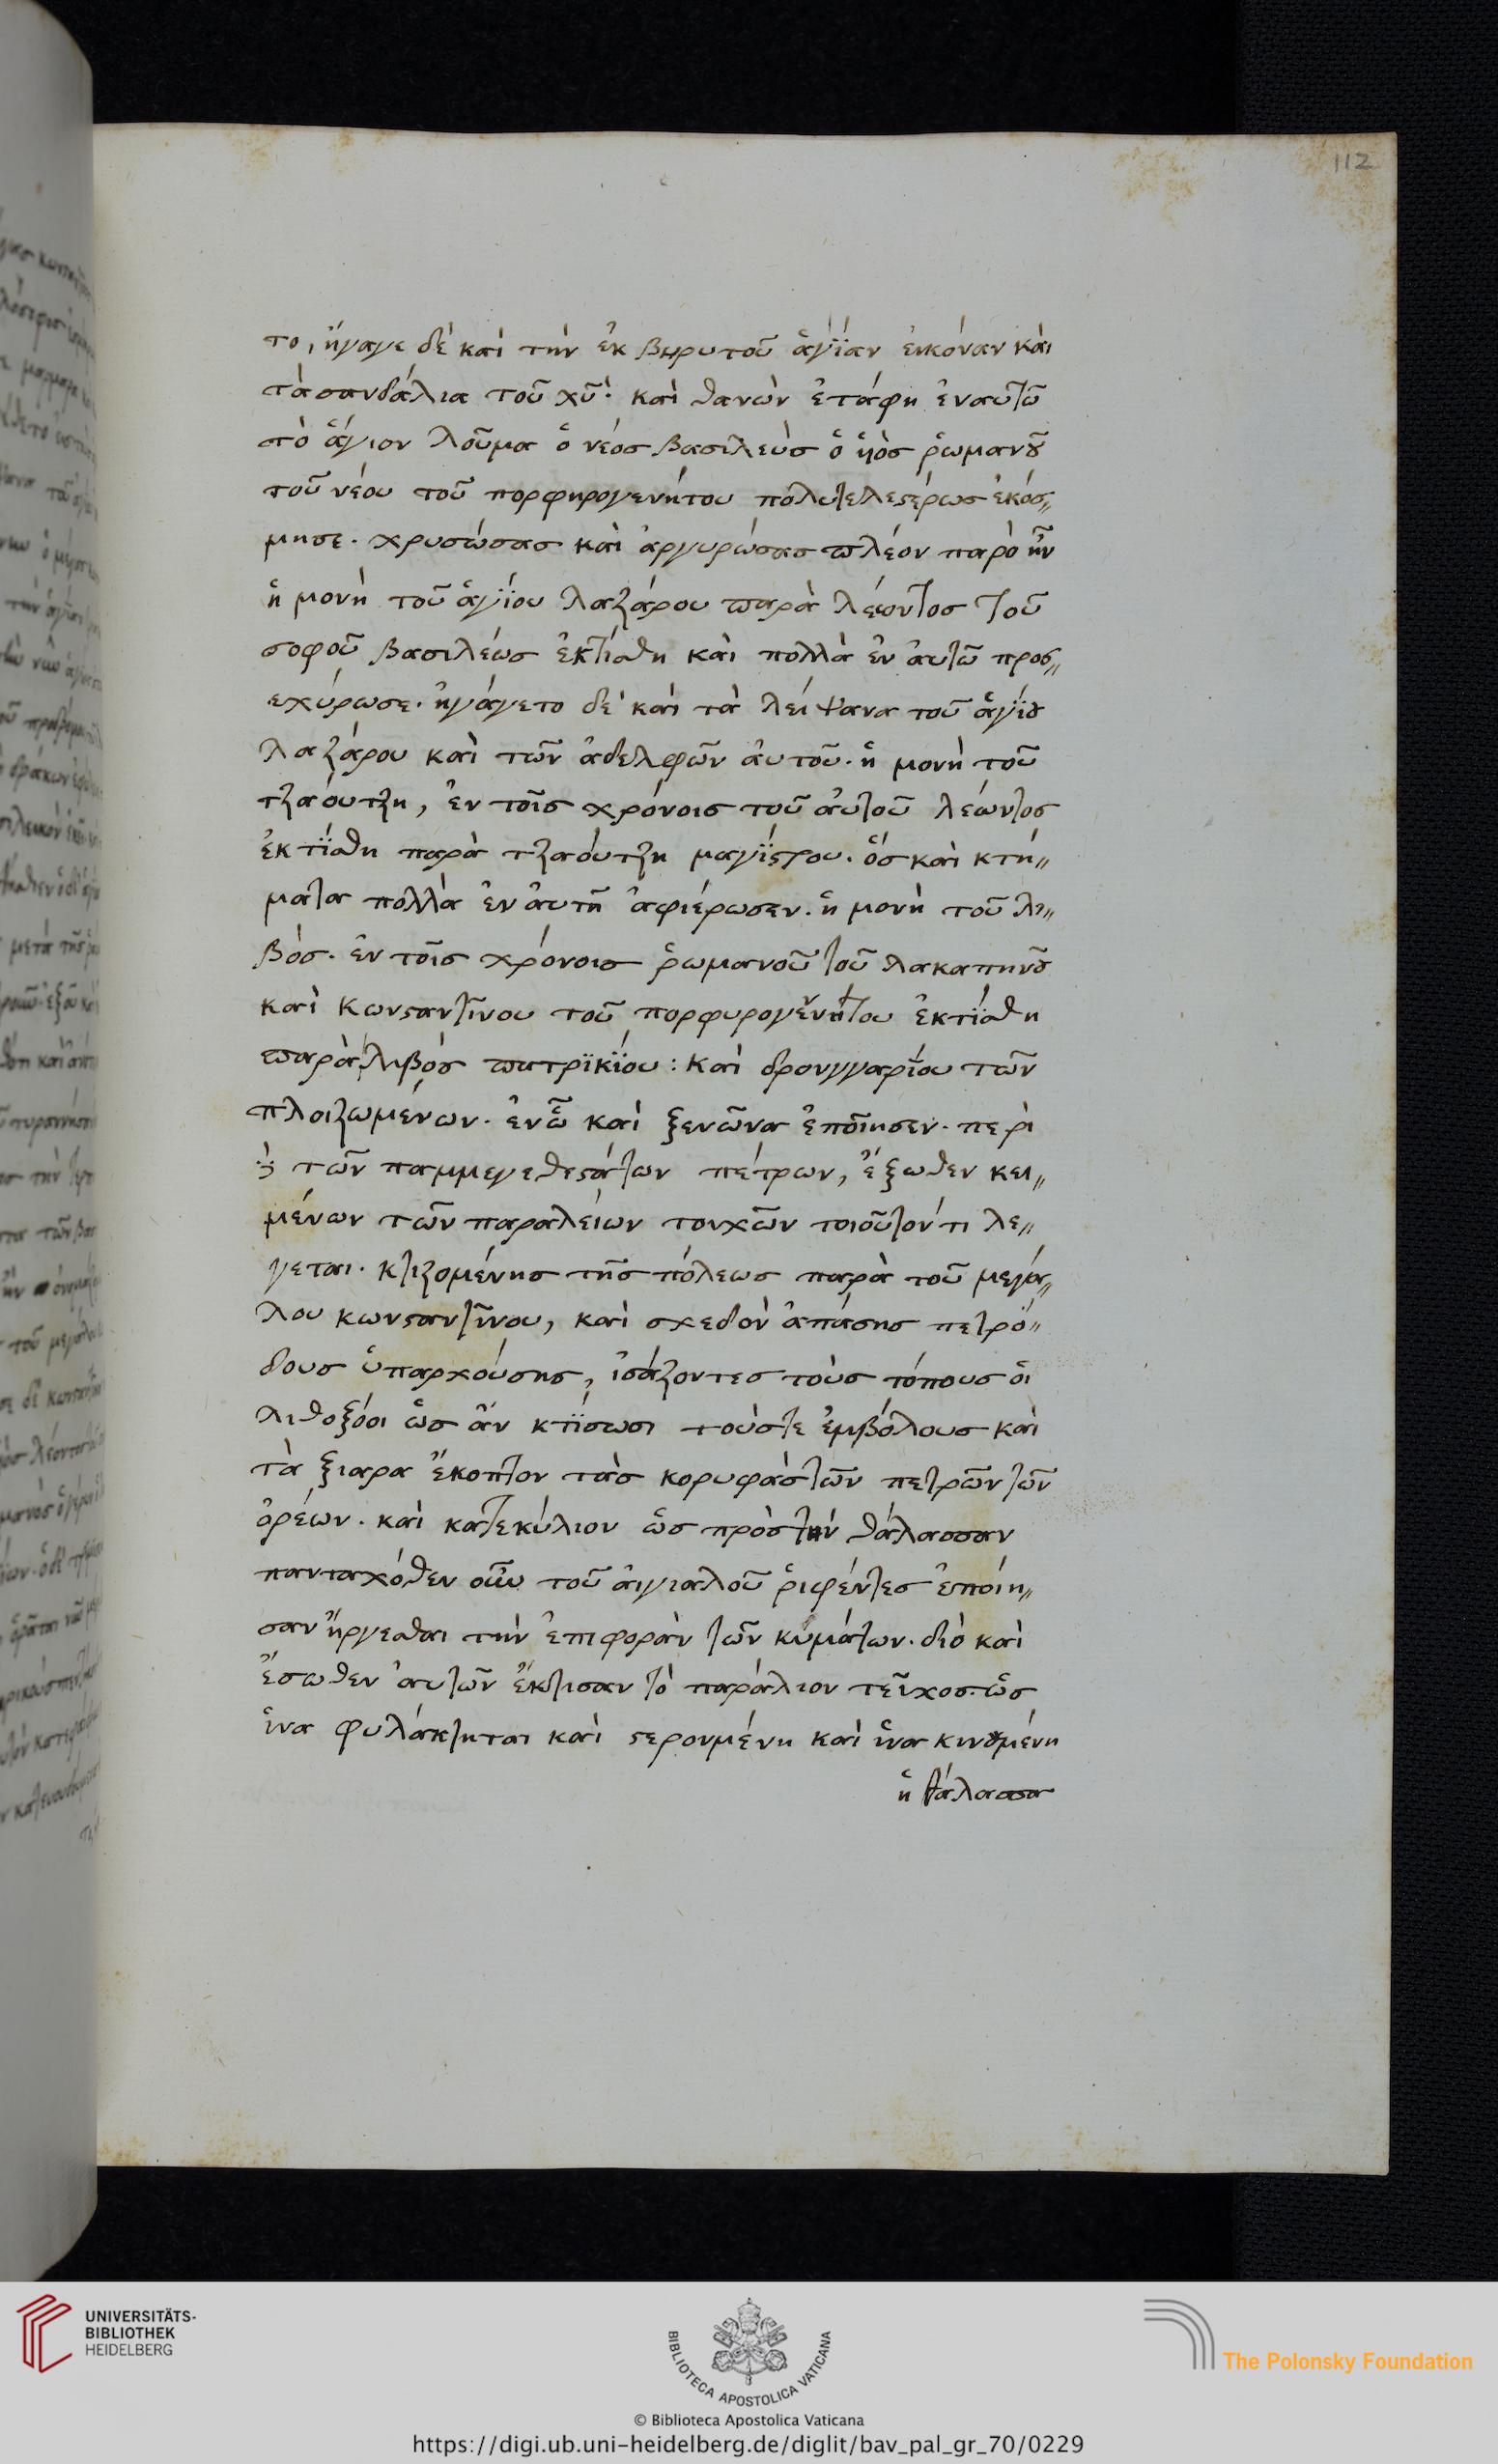 112
το, ἤγαγε δὲ καὶ τὴν ἐκ βηρυτοῦ ἁγΐαν εἰκόναν καὶ
τὰ σανδάλια τοῦ χῦ· καὶ θανὼν ἐτάφη ἐναυτῶ
τὸ ἅγιον λοῦμα ὁ νέος βασιλεὺς ὁ ϋἱὸς ῥωμανοῦ
τοῦ νέου τοῦ πορφηρογενήτου πολυτελεστέρως ἐκόσ〃
μησε. χρυσώσας καὶ ἀργυρώσας πλέον παρὸ ἦν
ἡ μονὴ τοῦ ἁγίου λαζάρου παρὰ λέοντος τοῦ
σοφοῦ βασιλέως ἐκτίσθη καὶ πολλὰ ἐν αὐτῶ προσ〃
εχύρωσε. ἠγάγετο δὲ καὶ τὰ λείψανα τοῦ ἁγΐου
λαζάρου καὶ τῶν ἀδελφῶν ἀυτοῦ. ἡ μονὴ τοῦ
τζαόυτζη, ἐν τοῖς χρόνοις τοῦ ἀυτοῦ λέωντος
ἐκτΐσθη παρὰ τζαόυτζη μαγΐστρου. ὃς καὶ κτή〃
ματα πολλὰ ἐν ἀυτῆ ἀφιέρωσεν. ἡ μονὴ τοῦ λι〃
βός. ἐν τοῖς χρόνοις ῥωμανοῦ τοῦ λακαπηνοῦ
καὶ Κωνσταντίνου τοῦ πορφυρογεννήτου ἐκτΐσθη
παρὰ λιβὸς πατρϊκΐου: καὶ δρουγγαρίου τῶν
πλοιζωμένων. ἐνῶ καὶ ξενῶνα ἐποίησεν. περὶ
τῶν παμμεγεθεστάτων πέτρων, ἔξωθεν κει〃
μένων τῶν παραλείων τοιχῶν τοιοῦτόν τι λε〃
γεται. κτιζομένης τῆς πόλεως παρὰ τοῦ μεγά〃
λου κωνσταντίνου, καὶ σχεδὸν ἁπάσης πετρό〃
δους ὑπαρχούσης, ἰσάζοντες τοὺς τόπους οἱ
λιθοξόοι ὡς ἂν κτΐσωσι τούστε ἐμβόλους καὶ
τὰ ξιαρα ἔκοπτον τὰς κορυφὰς τῶν πετρῶν τῶν
ὀρέων. καὶ κατεκύλιον ὡς πρὸς τὴν θάλασσαν
πανταχόθεν οὖν τοῦ ἀιγιαλοῦ ῥιφέντες ἐποίη〃
σαν ἤργεσθαι τὴν ἐπιφορὰν τῶν κυμάτων. διὸ καὶ
ἔσωθεν ἀυτῶν ἔκτισαν τὸ παράλιον τεῖχος. ὡς
ἵνα φυλάκτηται καὶ στερουμένη καὶ ἵνα κινουμένη
ἡ θάλασσα
UNIVERSITÄTS-
BIBLIOTHEK
HEIDELBERG
BIBLIOTECA APOSTOLICA VATICANA
The Polonsky Foundation
© Biblioteca Apostolica Vaticana
https://digi.ub.uni-heidelberg.de/diglit/bav_pal_gr_70/0229